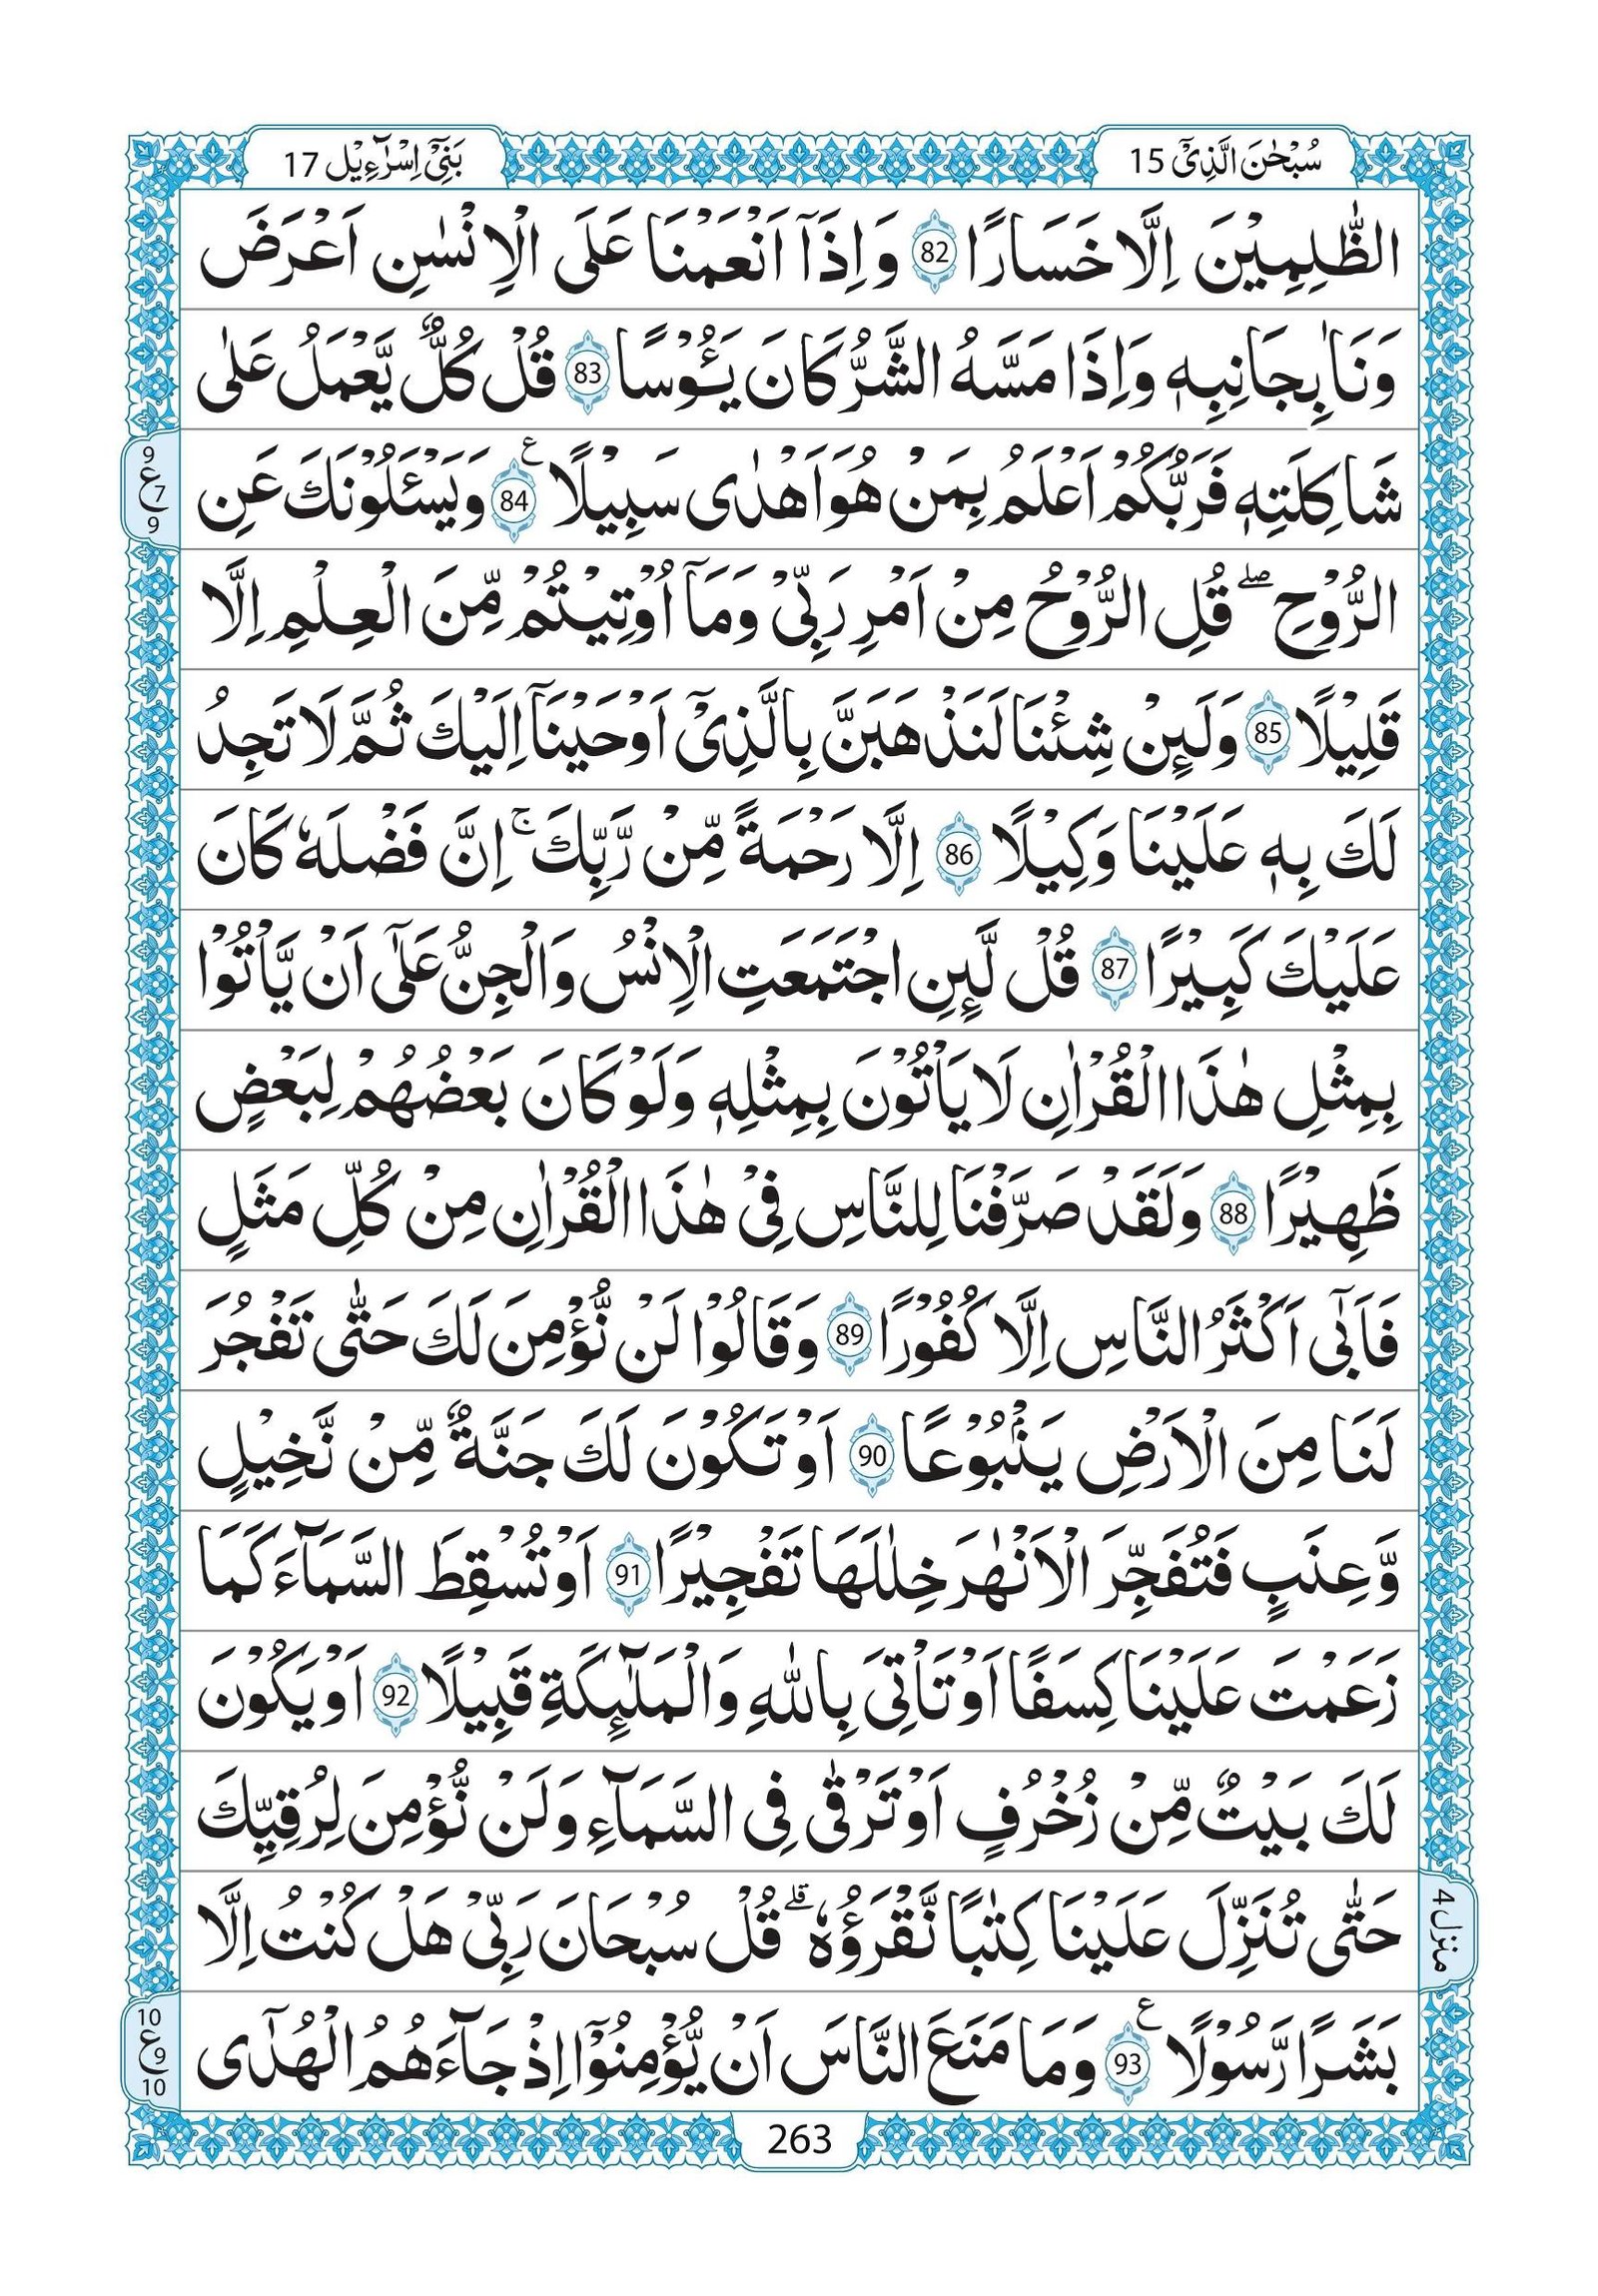 سُبْحٰنَ الَّذِیْۤ 15
بَنِیْۤ اِسْرَآءِیْل 17
الظّٰلِمِیْنَ اِلَّا خَسَارًا 82 وَ اِذَاۤ اَنْعَمْنَا عَلَی الْاِنْسٰنِ اَعْرَضَ
وَنَاٰ بِجَانِبِهٖ وَاِذَا مَسَّهُ الشَّرُّ كَانَ یَـُٔوْسًا 83 قُلْ كُلٌّ یَّعْمَلُ عَلٰی
شَاكِلَتِهٖ فَرَبُّكُمْ اَعْلَمُ بِمَنْ هُوَ اَهْدٰی سَبِیْلًا ع 84 وَیَسْـَٔلُوْنَكَ عَنِ
9 ع 7 9
الرُّوْحِ ۖ قُلِ الرُّوْحُ مِنْ اَمْرِ رَبِّیْ وَمَاۤ اُوْتِیْتُمْ مِّنَ الْعِلْمِ اِلَّا
قَلِیْلًا 85 وَلَىِٕنْ شِئْنَا لَنَذْهَبَنَّ بِالَّذِیْۤ اَوْحَیْنَاۤ اِلَیْكَ ثُمَّ لَا تَجِدُ
لَكَ بِهٖ عَلَیْنَا وَكِیْلًا 86 اِلَّا رَحْمَةً مِّنْ رَّبِّكَ ۚ اِنَّ فَضْلَهٗ كَانَ
عَلَیْكَ كَبِیْرًا 87 قُلْ لَّىِٕنِ اجْتَمَعَتِ الْاِنْسُ وَالْجِنُّ عَلٰۤی اَنْ یَّاْتُوْا
بِمِثْلِ هٰذَا الْقُرْاٰنِ لَا یَاْتُوْنَ بِمِثْلِهٖ وَلَوْ كَانَ بَعْضُهُمْ لِبَعْضٍ
ظَهِیْرًا 88 وَلَقَدْ صَرَّفْنَا لِلنَّاسِ فِیْ هٰذَا الْقُرْاٰنِ مِنْ كُلِّ مَثَلٍ
فَاَبٰۤی اَكْثَرُ النَّاسِ اِلَّا كُفُوْرًا 89 وَقَالُوْا لَنْ نُّؤْمِنَ لَكَ حَتّٰی تَفْجُرَ
لَنَا مِنَ الْاَرْضِ یَنْۢبُوْعًا 90 اَوْ تَكُوْنَ لَكَ جَنَّةٌ مِّنْ نَّخِیْلٍ
وَّعِنَبٍ فَتُفَجِّرَ الْاَنْهٰرَ خِلٰلَهَا تَفْجِیْرًا 91 اَوْ تُسْقِطَ السَّمَآءَ كَمَا
زَعَمْتَ عَلَیْنَا كِسَفًا اَوْ تَاْتِیَ بِاللّٰهِ وَالْمَلٰٓىِٕكَةِ قَبِیْلًا 92 اَوْ یَكُوْنَ
لَكَ بَیْتٌ مِّنْ زُخْرُفٍ اَوْ تَرْقٰی فِی السَّمَآءِ وَلَنْ نُّؤْمِنَ لِرُقِیِّكَ
حَتّٰی تُنَزِّلَ عَلَیْنَا كِتٰبًا نَّقْرَؤُهٗ ۗ قُلْ سُبْحَانَ رَبِّیْ هَلْ كُنْتُ اِلَّا
منزل 4
بَشَرًا رَّسُوْلًا ع 93 وَمَا مَنَعَ النَّاسَ اَنْ یُّؤْمِنُوْۤا اِذْ جَآءَهُمُ الْهُدٰۤی
10 ع 9 10
263